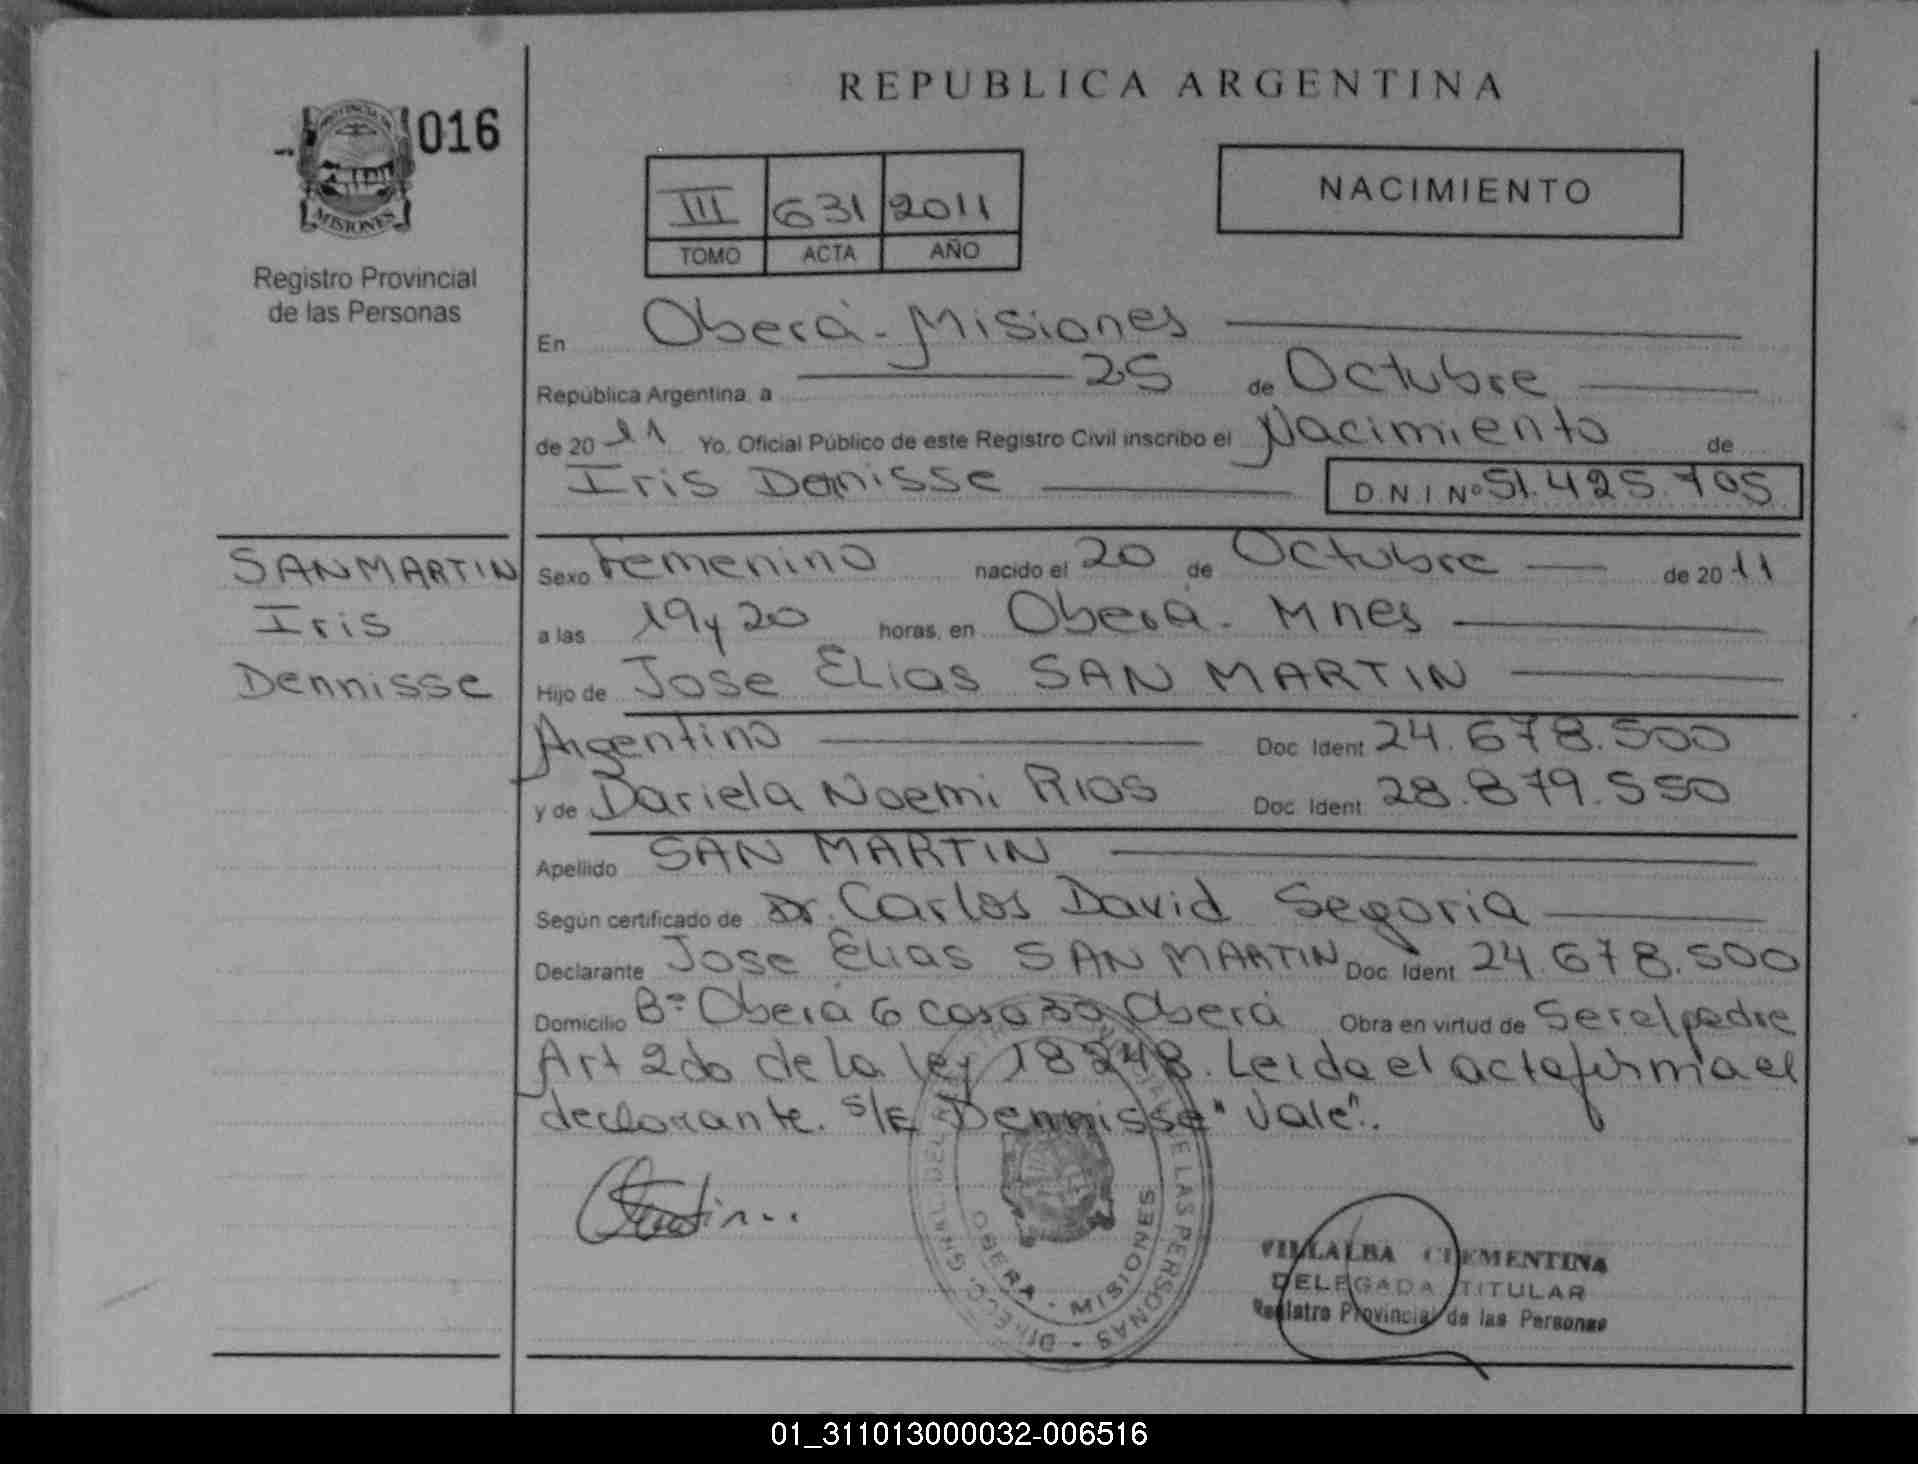 REPUBLICA ARGENTINA
PROVINCIA DE
MISIONES
016
Registro Provincial
de las Personas
III 631 2011
TOMO ACTA AÑO
NACIMIENTO
En Oberá - Misiones
República Argentina, a 25 de Octubre
de 2011 Yo, Oficial Público de este Registro Civil inscribo el Nacimiento de
Iris Denisse D.N.I Nº 51.425.705
SAN MARTIN
Iris
Dennisse
Sexo Femenino nacido el 20 de Octubre de 2011
a las 19 y 20 horas, en Oberá - Mnes
Hijo de Jose Elias SAN MARTIN
Argentino Doc. Ident 24.678.500
y de Dariela Noemi RIOS Doc. Ident 28.879.550
Apellido SAN MARTIN
Según certificado de Dr. Carlos David Segovia
Declarante Jose Elias SAN MARTIN Doc. Ident 24.678.500
Domicilio Bº Oberá 6 casa 30 Oberá Obra en virtud de Ser el padre
Art 2do de la ley 18248. Leida el acta firma el
declarante. S/E Dennisse "Vale".
OBERA - MISIONES
DE LAS PERSONAS - DIRECC. GRAL. DEL
VILLALBA CLEMENTINA
DELEGADA TITULAR
Registro Provincial de las Personas
01_311013000032-006516